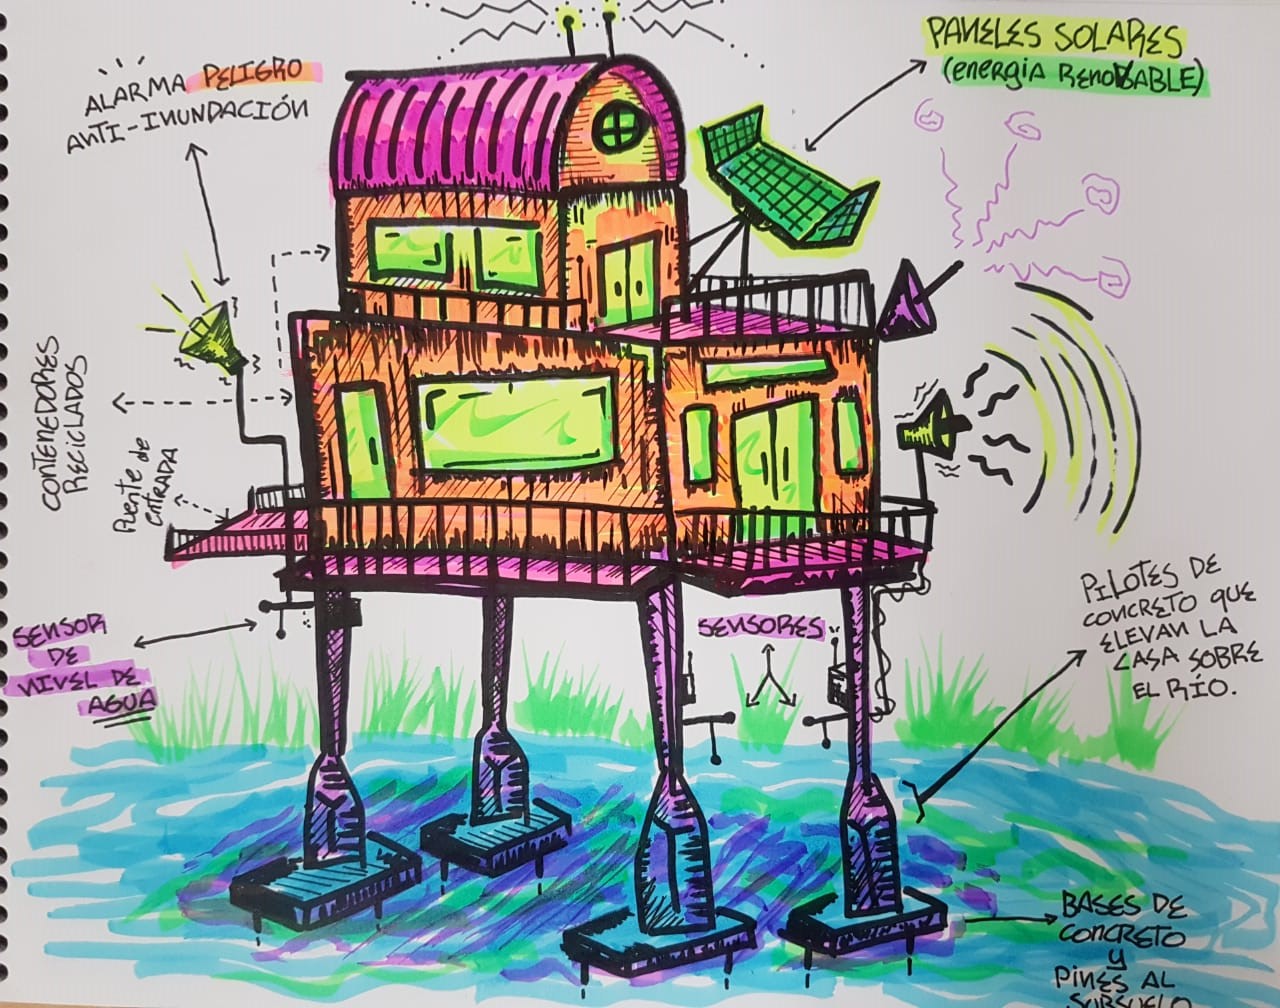 ALARMA PELIGRO
ANTI-INUNDACIÓN
PANELES SOLARES
(ENERGIA RENOVABLE)
CONTENEDORES
RECICLADOS
PUENTE DE
ENTRADA
SENSOR
DE
NIVEL DE
AGUA
SENSORES
PILOTES DE
CONCRETO QUE
ELEVAN LA
CASA SOBRE
EL RÍO.
BASES DE
CONCRETO
Y
PINES AL
SUBSUELO